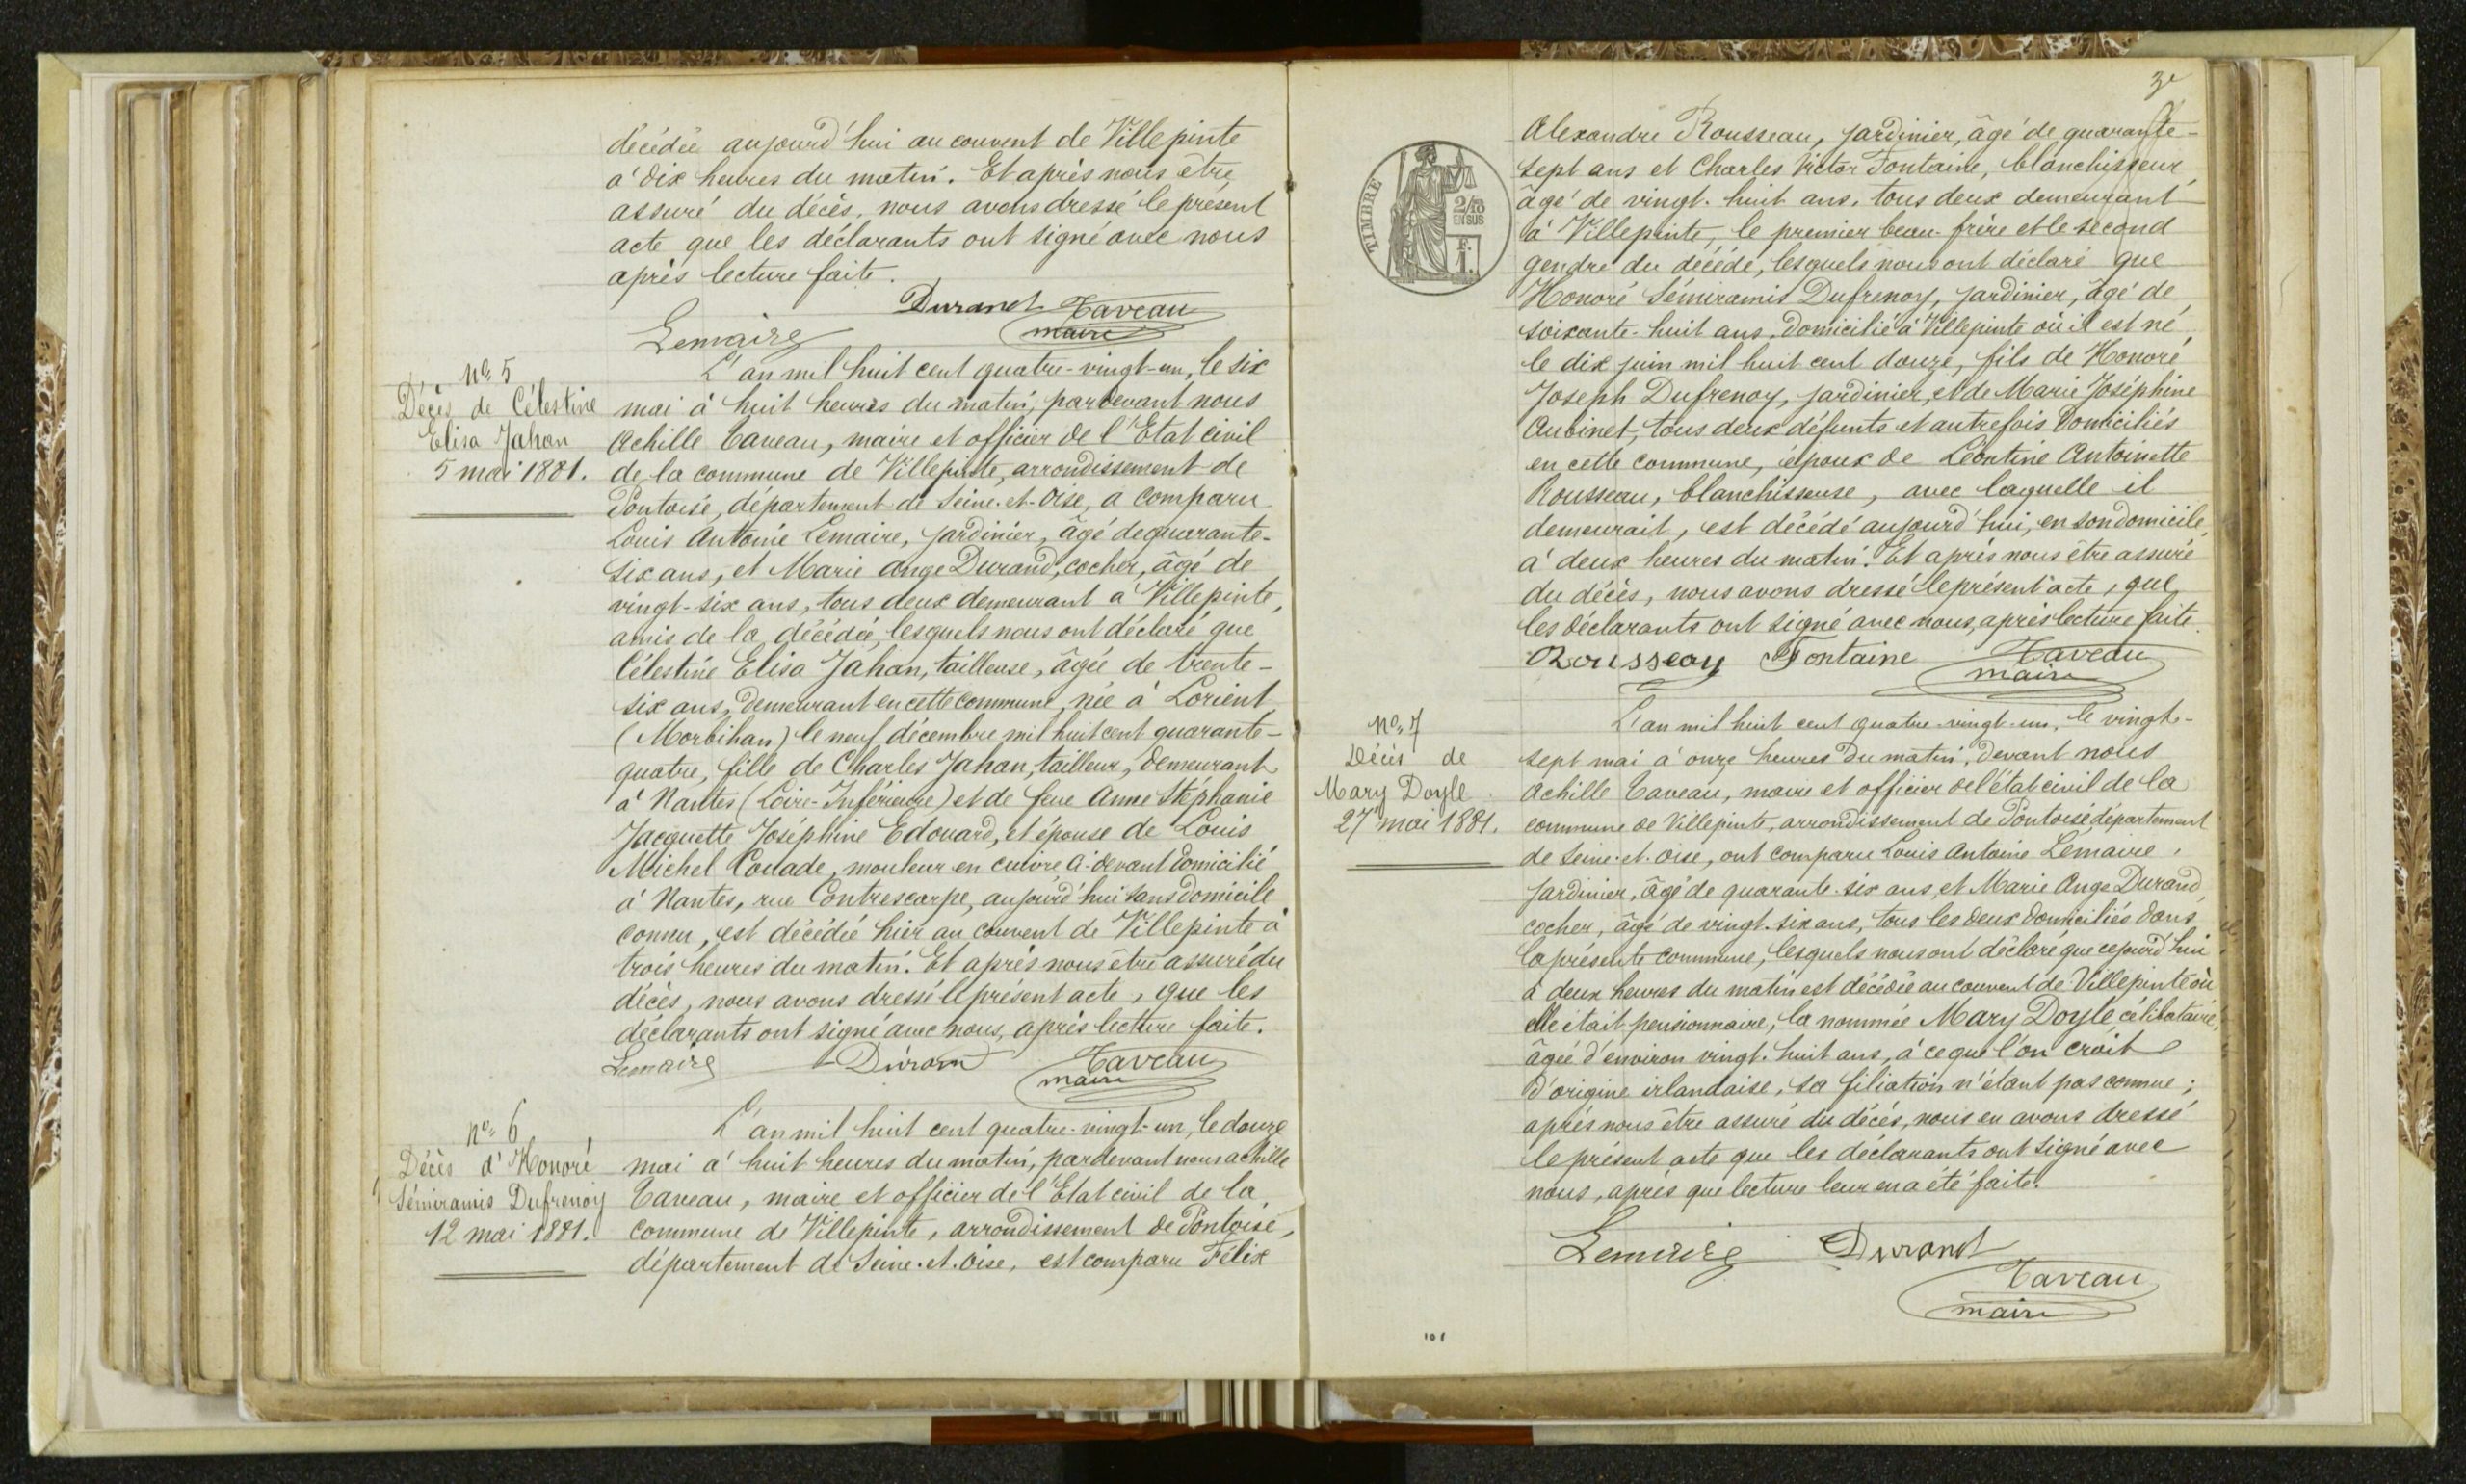 décédée aujourd'hui au couvent de Villepinte
à dix heures du matin. Et après nous être
assuré du décès, nous avons dressé le présent
acte que les déclarants ont signé avec nous
après lecture faite.
Durand Taveau
Lemaire maire
No 5
Décès de Célestine
Elisa Jahan
5 mai 1881.
L'an mil huit cent quatre-vingt-un, le six
mai à huit heures du matin, pardevant nous
Achille Taveau, maire et officier de l'Etat civil
de la commune de Villepinte, arrondissement de
Pontoise, département de Seine-et-Oise, a comparu
Louis Antoine Lemaire, jardinier, âgé de quarante-
six ans, et Marie Ange Durand, cocher, âgé de
vingt-six ans, tous deux demeurant à Villepinte,
amis de la décédée, lesquels nous ont déclaré que
Célestine Elisa Jahan, tailleuse, âgée de trente-
six ans, demeurant en cette commune, née à Lorient
(Morbihan) le neuf décembre mil huit cent quarante-
quatre, fille de Charles Jahan, tailleur, demeurant
à Nantes (Loire-Inférieure) et de feue Anne Stéphanie
Jacquette Joséphine Edouard, et épouse de Louis
Michel Couade, mouleur en cuivre ci-devant domicilié
à Nantes, rue Contrescarpe, aujourd'hui sans domicile
connu, est décédée hier au couvent de Villepinte à
trois heures du matin. Et après nous être assuré du
décès, nous avons dressé le présent acte, que les
déclarants ont signé avec nous, après lecture faite.
Lemaire Durand Taveau
maire
No 6
Décès d'Honoré
Sémiramis Dufrenoy
12 mai 1881.
L'an mil huit cent quatre-vingt-un, le douze
mai à huit heures du matin, pardevant nous Achille
Taveau, maire et officier de l'Etat civil de la
commune de Villepinte, arrondissement de Pontoise,
département de Seine-et-Oise, est comparu Félix
3e
TIMBRE
2/10
EN SUS
F.
1.
Alexandre Rousseau, jardinier, âgé de quarante-
sept ans et Charles Victor Fontaine, blanchisseur,
âgé de vingt-huit ans, tous deux demeurant
à Villepinte, le premier beau-frère et le second
gendre du décédé, lesquels nous ont déclaré que
Honoré Sémiramis Dufrenoy, jardinier, âgé de
soixante-huit ans, domicilié à Villepinte où il est né
le dix juin mil huit cent douze, fils de Honoré
Joseph Dufrenoy, jardinier, et de Marie Joséphine
Aubinet, tous deux défunts et autrefois domiciliés
en cette commune, époux de Léontine Antoinette
Rousseau, blanchisseuse, avec laquelle il
demeurait, est décédé aujourd'hui, en son domicile,
à deux heures du matin. Et après nous être assuré
du décès, nous avons dressé le présent acte, que
les déclarants ont signé avec nous, après lecture faite.
Rousseau Fontaine Taveau
maire
No 7
Décès de
Mary Doyle
27 mai 1881.
L'an mil huit cent quatre-vingt-un, le vingt-
sept mai à onze heures du matin, devant nous
Achille Taveau, maire et officier de l'état civil de la
commune de Villepinte, arrondissement de Pontoise, département
de Seine-et-Oise, ont comparu Louis Antoine Lemaire,
jardinier, âgé de quarante-six ans, et Marie Ange Durand,
cocher, âgé de vingt-six ans, tous les deux domiciliés dans
la présente commune, lesquels nous ont déclaré que cejourd'hui
à deux heures du matin est décédée au couvent de Villepinte où
elle était pensionnaire, la nommée Mary Doyle, célibataire,
âgée d'environ vingt-huit ans, à ce que l'on croit
d'origine irlandaise, sa filiation n'étant pas connue;
après nous être assuré du décès, nous en avons dressé
le présent acte que les déclarants ont signé avec
nous, après que lecture leur en a été faite.
Lemaire Durand
Taveau
maire